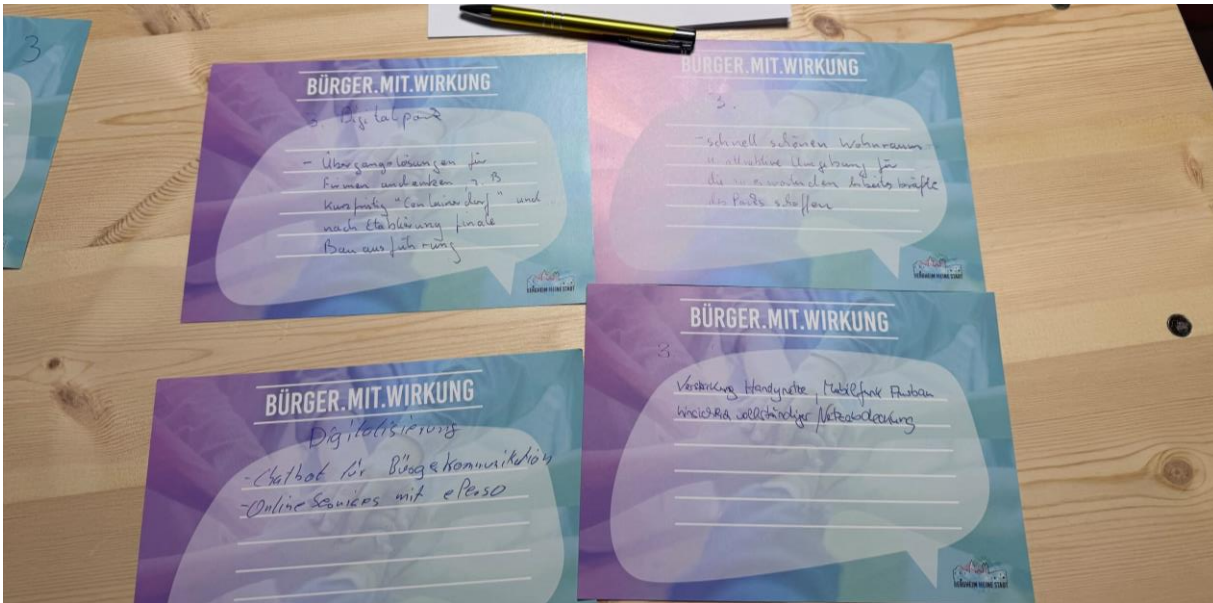 3
BÜRGER.MIT.WIRKUNG
3. Digitalpark
- Übergangslösungen für
Firmen andenken, z. B
kurzfristig "Containerdorf" und
nach Etablierung finale
Bauausführung
BERGHEIM MEINE STADT
BÜRGER.MIT.WIRKUNG
3.
- schnell schönen Wohnraum
u. attraktive Umgebung für
die zu erwartenden Arbeitskräfte
des Parks schaffen
BERGHEIM MEINE STADT
BÜRGER.MIT.WIRKUNG
Digitalisierung
- Chatbot für Bürgerkommunikation
- Online Services mit ePerso
BÜRGER.MIT.WIRKUNG
3
Verstärkung Handynetze, Mobilfunk Ausbau
hinsichtlich vollständiger Netzabdeckung
BERGHEIM MEINE STADT